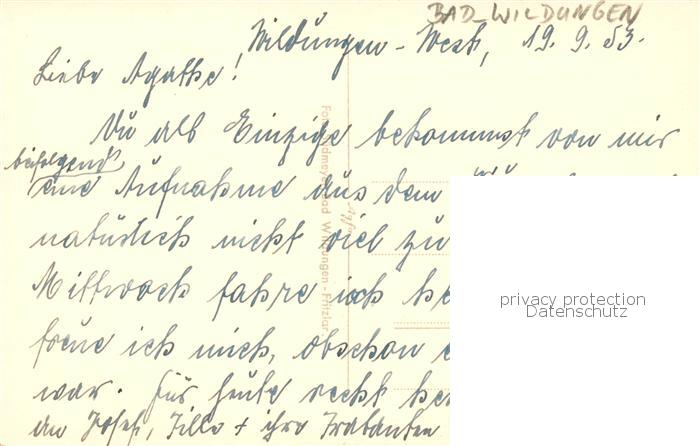 BAD-WILDUNGEN
Wildungen-West, 19. 9. 53.
Liebe Agathe!
Du als Einzige bekommst von mir
beifolgend
eine Aufnahme aus dem
natürlich nicht viel zu
Mittwoch fahre ich
freue ich mich, obschon
war. Für heute recht
an Josef, Tilla + ihre Trabanten
Wildungen-Fritzlar
privacy protection
Datenschutz